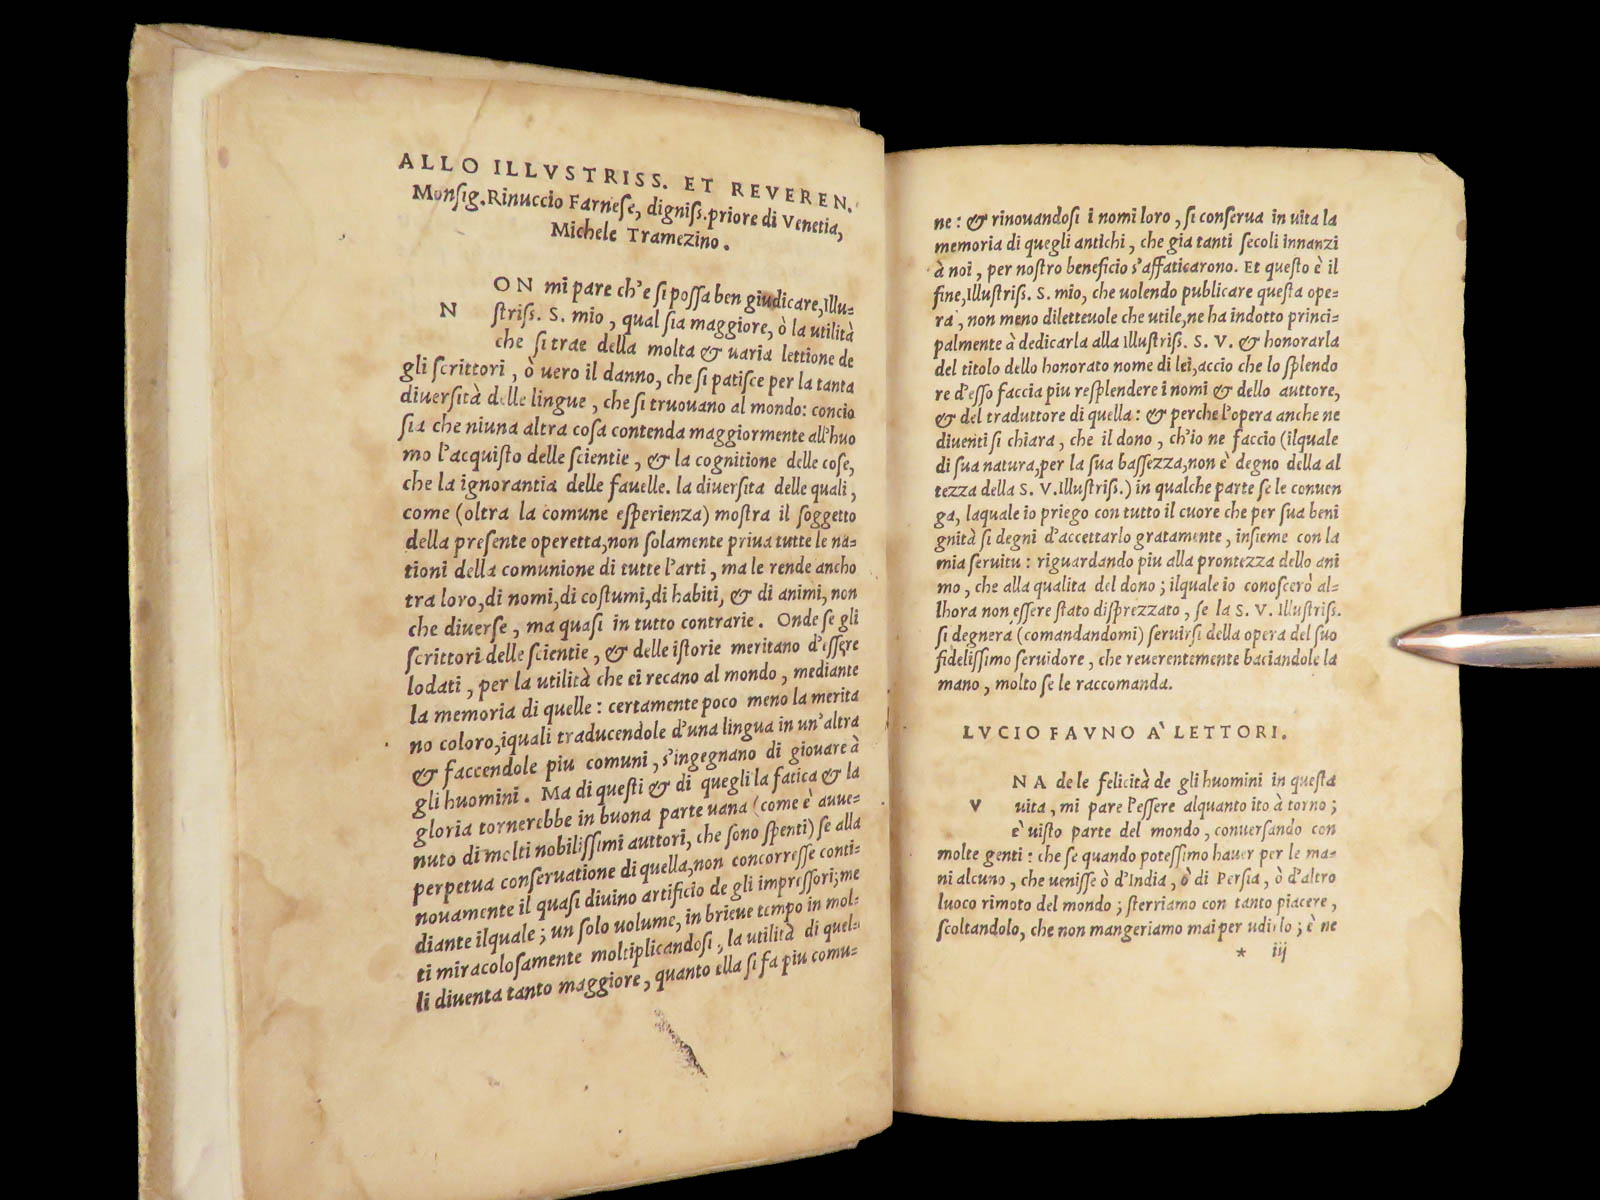 ALLO ILLVSTRISS. ET REVEREN.
Monſig. Rinuccio Farneſe, digniſſ. priore di Venetia,
Michele Tramezino.
ON mi pare ch'e ſi poſſa ben giudicare, Illu-
N ſtriſſ. S. mio, qual ſia maggiore, ò la utilità
che ſi trae della molta & uaria lettione de
gli ſcrittori, ò uero il danno, che ſi patiſce per la tanta
diuerſità delle lingue, che ſi truouano al mondo: concio
ſia che niuna altra coſa contenda maggiormente all'huo
mo l'acquiſto delle ſcientie, & la cognitione delle coſe,
che la ignorantia delle fauelle. la diuerſita delle quali,
come (oltra la comune eſperienza) moſtra il ſoggetto
della preſente operetta, non ſolamente priua tutte le na-
tioni della comunione di tutte l'arti, ma le rende ancho
tra loro, di nomi, di coſtumi, di habiti, & di animi, non
che diuerſe, ma quaſi in tutto contrarie. Onde ſe gli
ſcrittori delle ſcientie, & delle iſtorie meritano d'eſſere
lodati, per la utilità che ei recano al mondo, mediante
la memoria di quelle: certamente poco meno la merita
no coloro, iquali traducendole d'una lingua in un'altra
& faccendole piu comuni, s'ingegnano di giouare à
gli huomini. Ma di queſti & di quegli la fatica & la
gloria tornerebbe in buona parte uana (come è auue-
nuto di molti nobiliſſimi auttori, che ſono ſpenti) ſe alla
perpetua conſeruatione di quella, non concorreſſe conti-
nouamente il quaſi diuino artificio de gli impreſſori; me
diante ilquale; un ſolo uolume, in brieue tempo in mol-
ti miracoloſamente moltiplicandoſi, la utilità di quel-
li diuenta tanto maggiore, quanto ella ſi fa piu comu-
ne: & rinouandoſi i nomi loro, ſi conſerua in uita la
memoria di quegli antichi, che gia tanti ſecoli innanzi
à noi, per noſtro beneficio s'affaticarono. Et queſto è il
fine, Illuſtriſſ. S. mio, che uolendo publicare queſta ope-
ra, non meno diletteuole che utile, ne ha indotto princi-
palmente à dedicarla alla Illuſtriſſ. S. V. & honorarla
del titolo dello honorato nome di lei, accio che lo ſplendo
re d'eſſo faccia piu reſplendere i nomi & dello auttore,
& del traduttore di quella: & perche l'opera anche ne
diuenti ſi chiara, che il dono, ch'io ne faccio (ilquale
di ſua natura, per la ſua baſſezza, non è degno della al
tezza della S. V. Illuſtriſſ.) in qualche parte ſe le conuen
ga, laquale io priego con tutto il cuore che per ſua beni
gnità ſi degni d'accettarlo gratamente, inſieme con la
mia ſeruitu: riguardando piu alla prontezza dello ani
mo, che alla qualita del dono; ilquale io conoſcerò al-
lhora non eſſere ſtato diſprezzato, ſe la S. V. Illuſtriſſ.
ſi degnera (comandandomi) ſeruirſi della opera del ſuo
fideliſſimo ſeruidore, che reuerentemente baciandole la
mano, molto ſe le raccomanda.
LVCIO FAVNO A' LETTORI.
NA de le felicità de gli huomini in queſta
V uita, mi pare l'eſſere alquanto ito à torno;
è uiſto parte del mondo, conuerſando con
molte genti: che ſe quando poteſſimo hauer per le ma-
ni alcuno, che ueniſſe ò d'India, ò di Perſia, ò d'altro
luoco rimoto del mondo; ſterriamo con tanto piacere,
ſcoltandolo, che non mangeriamo mai per udirlo; è ne
* iij